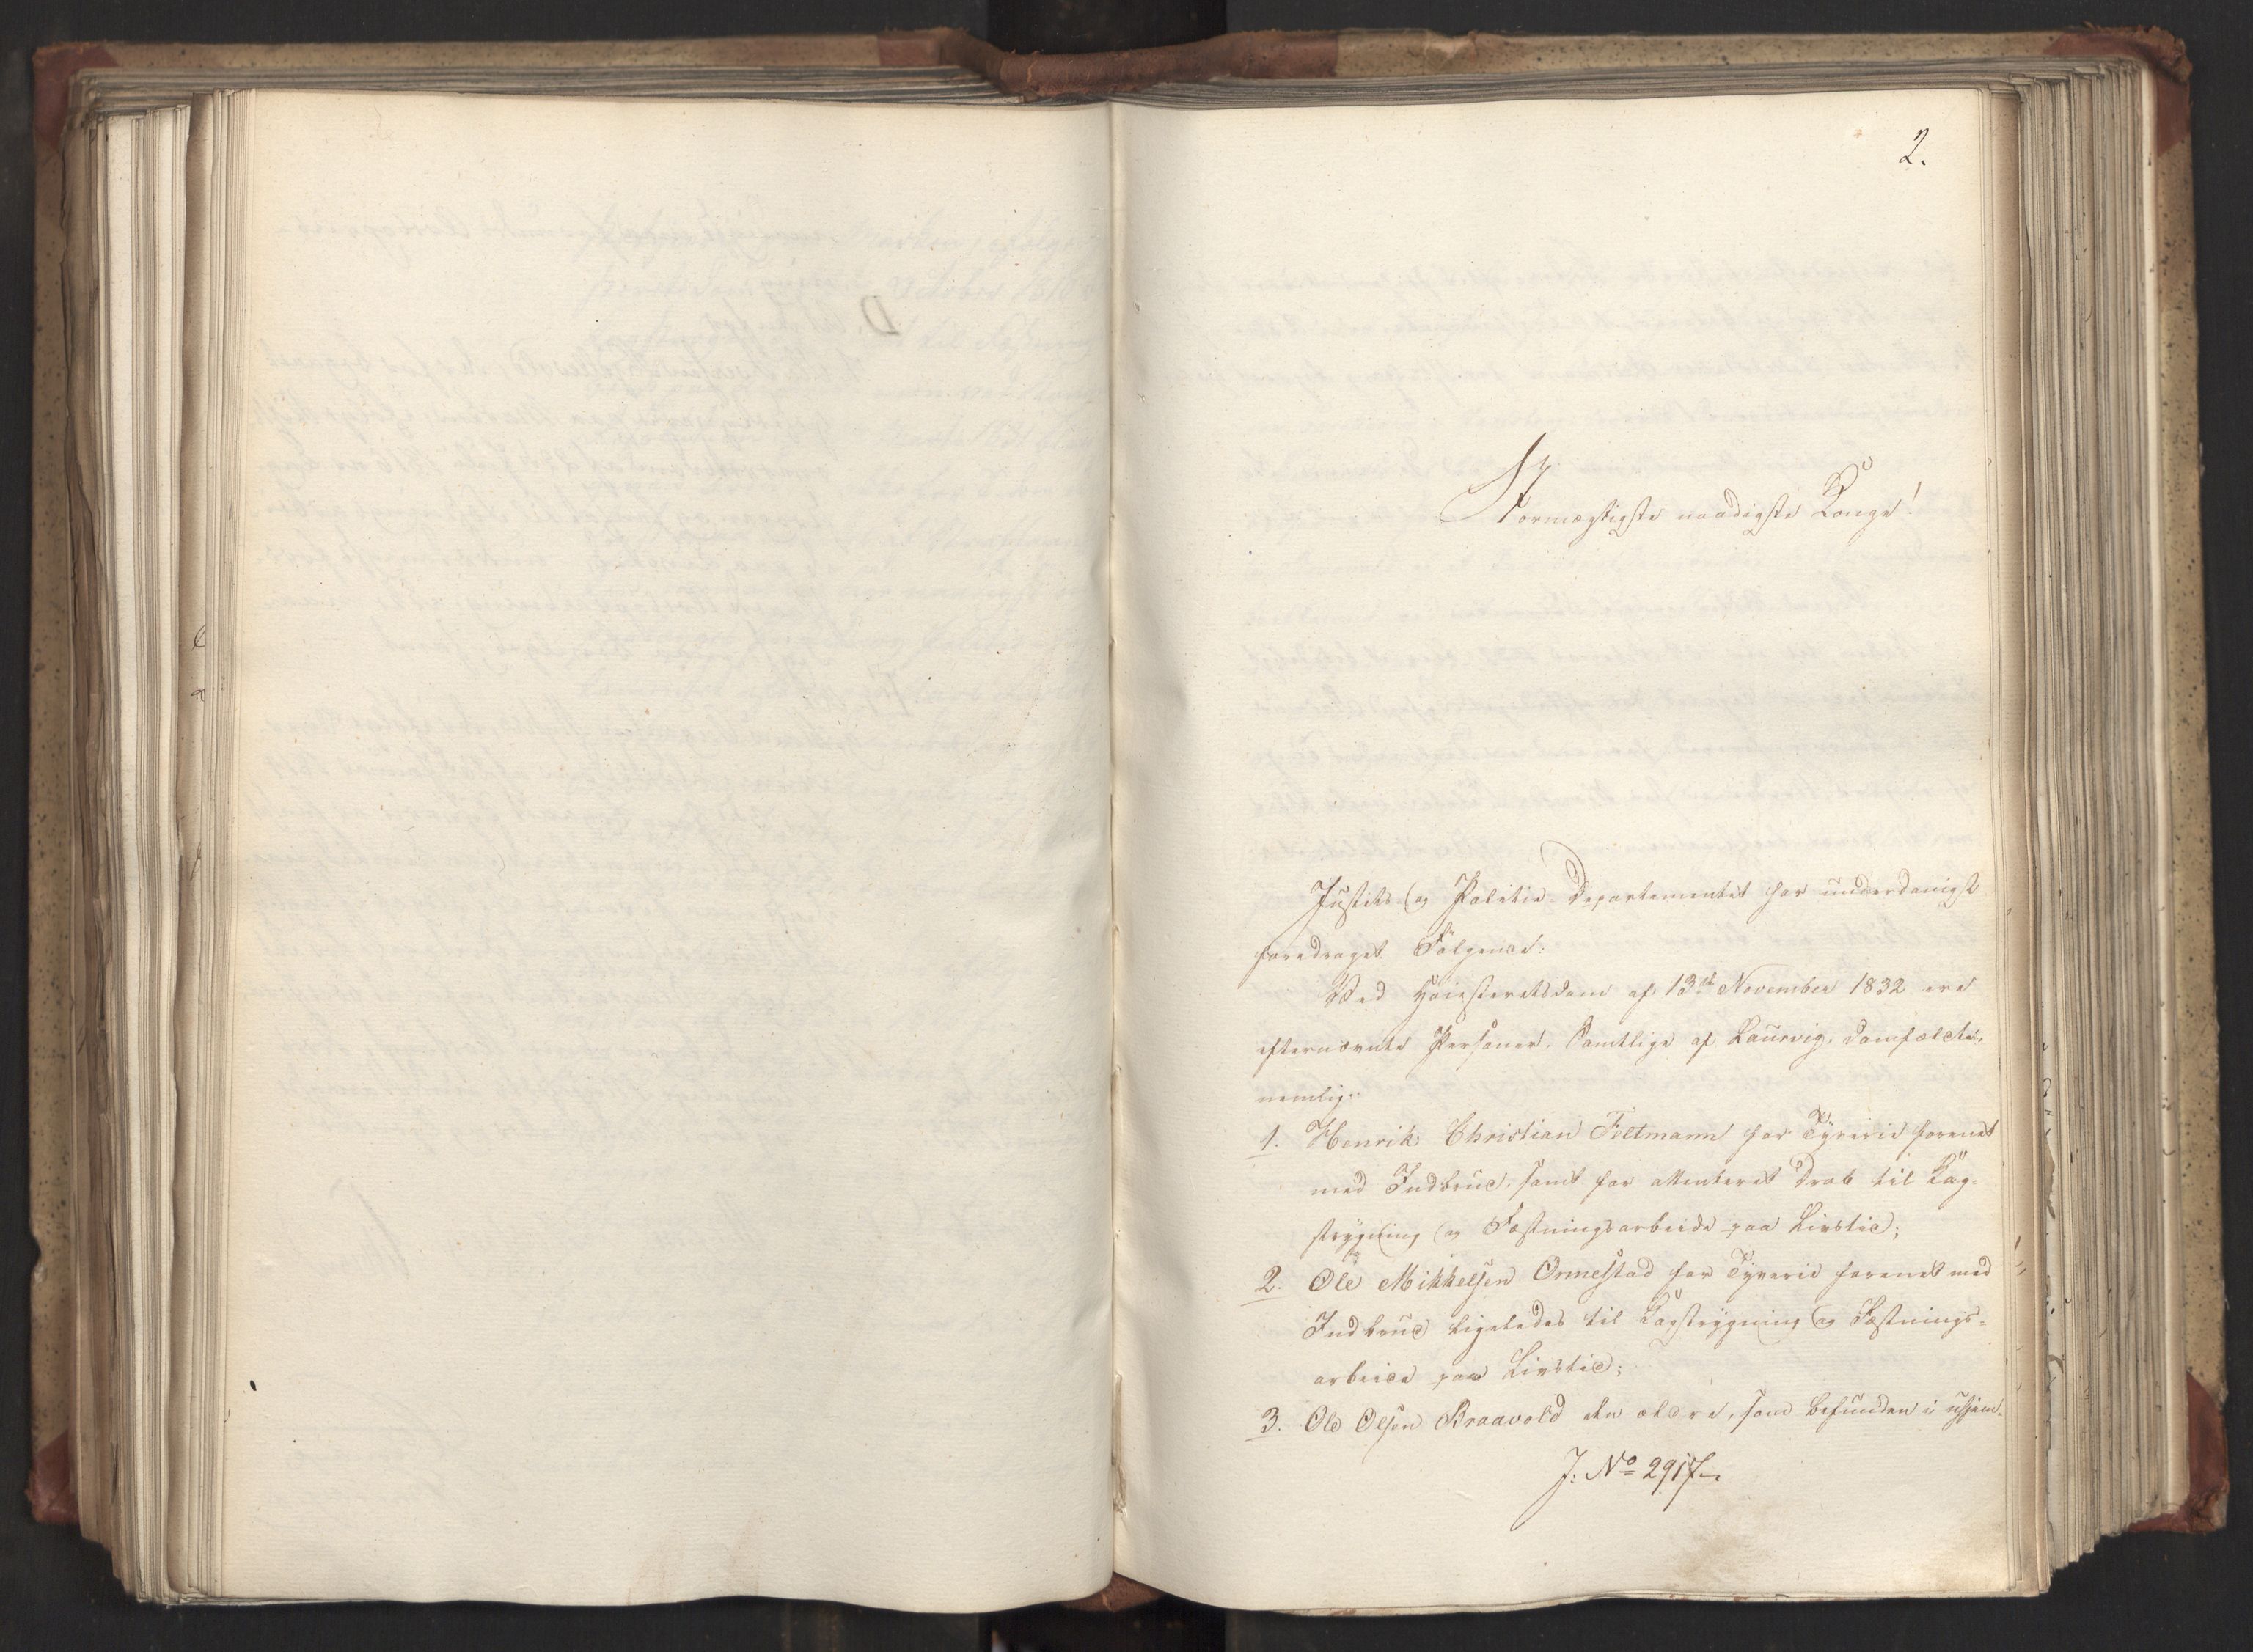 2.
Stormægtigste naadigste Konge!
Justits- og Politie-Departementet har underdanigst
foredraget Følgende:
Ved Høiesteretsdom af 13de November 1832 ere
efternævnte Personer, samtlige af Laurvig, domfældte,
nemlig:
1. Henrik Christian Feltmann for Tyverie forenet
med Indbrud, samt for attenteret Drab til Kag-
strygning og Fæstningsarbeide paa Livstid;
2. Ole Mikkelsen Ormestad for Tyverie forenet med
Indbrud ligeledes til Kagstrygning og Fæstnings-
arbeide paa Livstid;
3. Ole Olsen Braavold den ældre, som befunden i
J: No 2917.